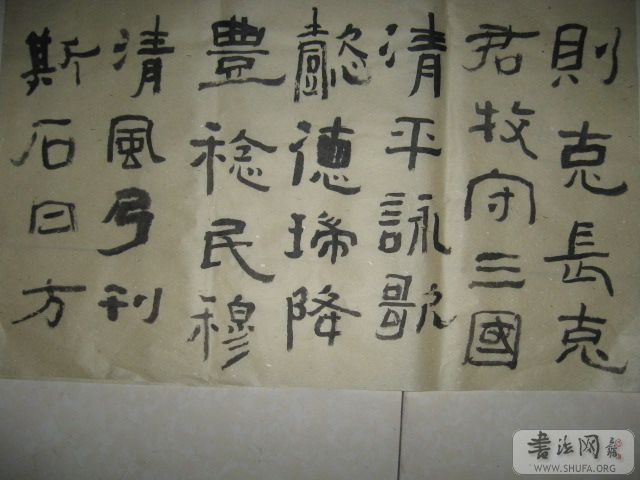 則克長克
君牧守三國
清平詠歌
懿德瑞降
豊稔民穆
清風乃刊
斯石曰方
书法网
WWW.SHUFA.ORG